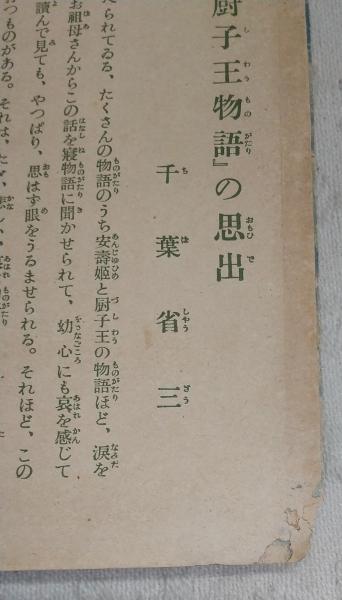 厨子王物語』の思出
千葉省三
えられてゐる、たくさんの物語のうち安壽姫と厨子王の物語ほど、涙を
お祖母さんからこの話を寢物語に聞かせられて、幼心にも哀を感じて
讀んで見ても、やつぱり、思はず眼をうるませられる。それほど、この
おつものがある。それは、たゞ、悲しい、哀れ